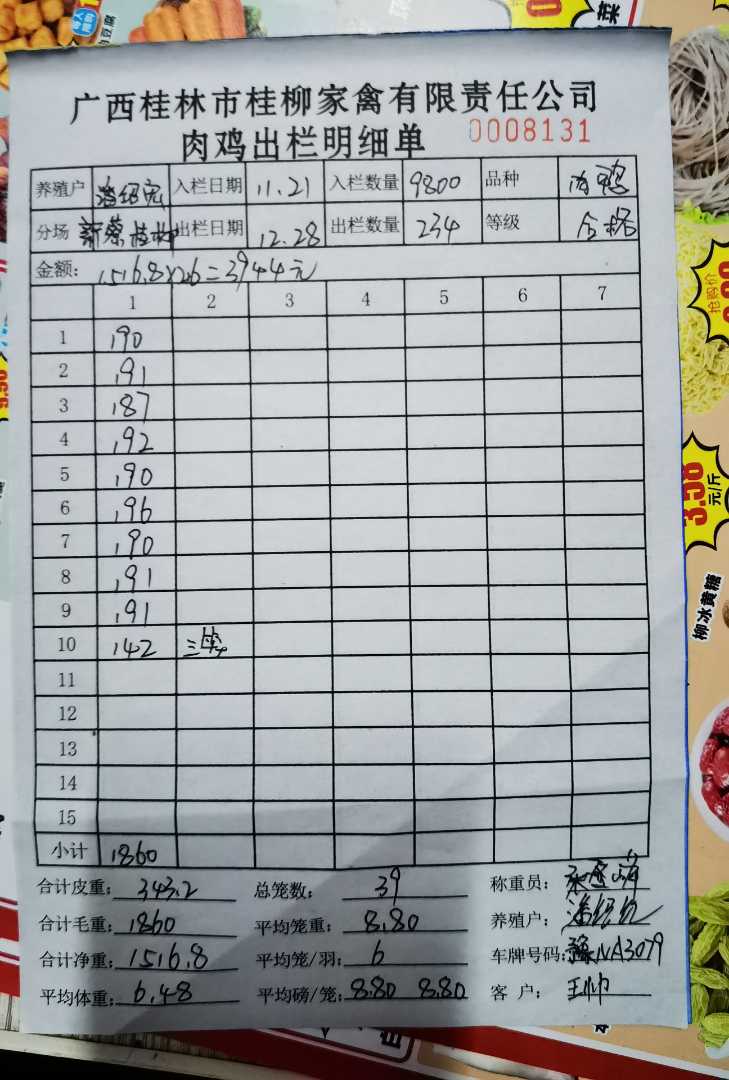 广西桂林市桂柳家禽有限责任公司
肉鸡出栏明细单 0008131
养殖户 潘绍宪 入栏日期 11.21 入栏数量 9800 品种 肉鸡
分场 新蔡桂柳 出栏日期 12.28 出栏数量 234 等级 合格
金额: 1516.8×2.6=3944元
1 2 3 4 5 6 7
1 190
2 191
3 187
4 192
5 190
6 196
7 190
8 191
9 191
10 142 三笼
11
12
13
14
15
小计 1860
合计皮重: 343.2 总笼数: 39 称重员:
合计毛重: 1860 平均笼重: 8.80 养殖户:
合计净重: 1516.8 平均笼/羽: 6 车牌号码: 豫NA3079
平均体重: 6.48 平均磅/笼: 8.80 8.80 客 户: 王帅
抢购价
3.58
元/斤
柳冰黄糖